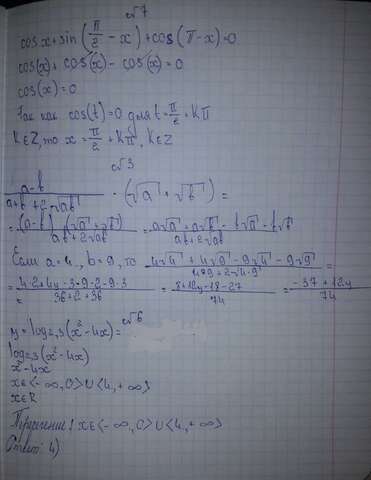 №7
cosx+sin(π/2-x)+cos(π-x)=0
cos(x)+cos(x)-cos(x)=0
cos(x)=0
Так как cos(t)=0 для t=π/2+Kπ
K∈Z, то x=π/2+Kπ, K∈Z
№3
(a-b)/(a+b+2√ab)·(√a+√b)=
=((a-b)·(√a+√b))/(ab+2√ab)=(a√a+a√b-b√a-b√b)/(ab+2√ab)
Если a=4, b=9, то (4√4+4√9-9√4-9√9)/(4·9+2√4·9)=
№6
y=log2,3(x²-4x)=
log2,3(x²-4x)
x²-4x
x∈<-∞,0>∪<4,+∞>
x∈R
x∈<-∞,0>∪<4,+∞>
Ответ: 4)